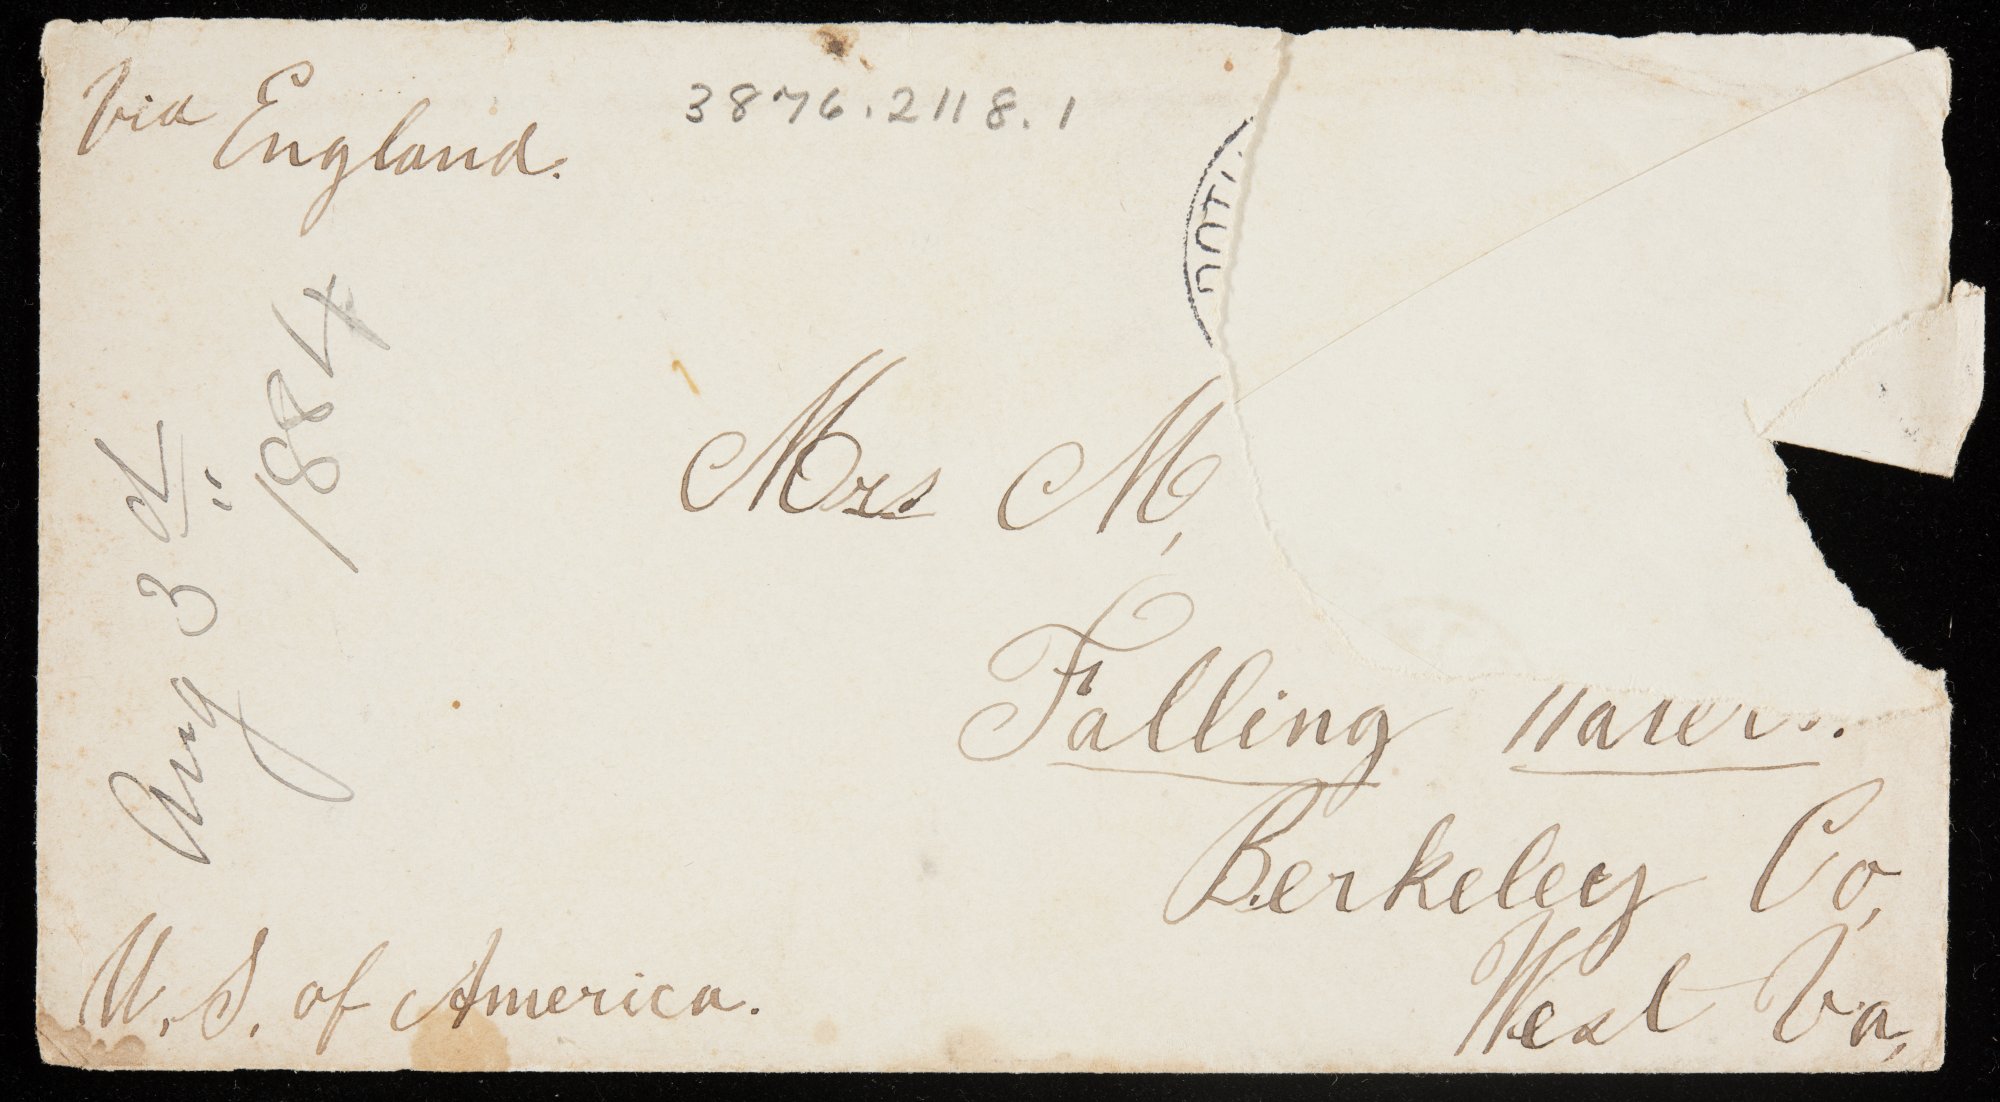 Via England.
3876.2118.1
Aug 3d 1884
Mrs M,
Falling Waters.
Berkeley Co,
West Va,
U. S. of America.